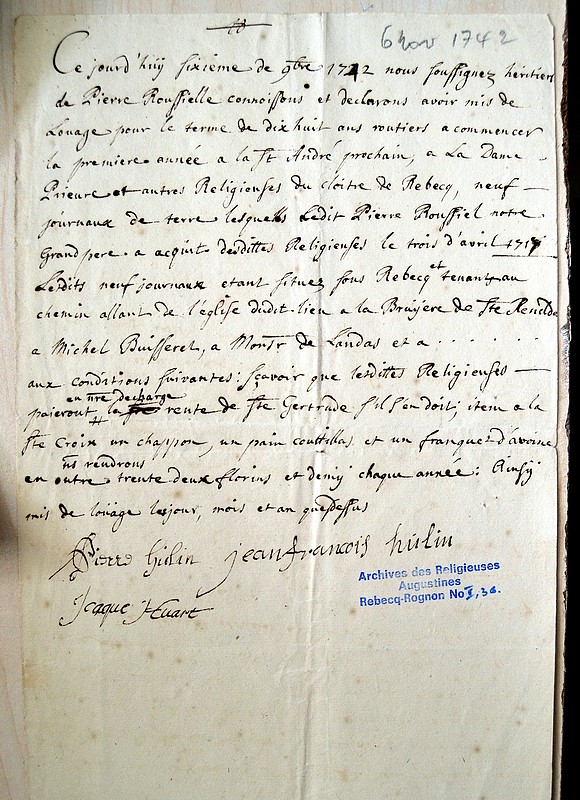 6 nov 1742
Ce jourd'huy sixieme de 9bre 1742 nous soussignez heritiers
de Pierre Roussielle connoissons et declarons avoir mis de
Louage pour le terme de dix huit ans routiers a commencer
la premiere année a la St André prochain, a La Dame
Prieure et autres Religieuses du cloitre de Rebecq, neuf
journaux de terre lesquels Ledit Pierre Roussiel notre
Grand pere a acquit desdittes Religieuses le trois d'avril 1717
Lesdits neuf journaux etant situez sous Rebecq et tenant au
chemin allant de l'église dudit lieu a la Bruyere de Ste Renelde
a Michel Buisseret, a Monsr de Landas et a . . . . . . .
aux conditions suivantes: sçavoir que lesdittes Religieuses
en nre decharge
paieront la rente de Ste Gertrude s'il s'en doit; item a la
Ste Croix un chappon, un pain coutillas et un franquet d'avoine
ns rendrons
en outre trente deux florins et demij chaque année: Ainsij
mis de louage les jour, mois et an que dessus
Pierre Hulin jean francois hulin
Jcaque Huart
Archives des Religieuses
Augustines
Rebecq-Rognon No I, 36.